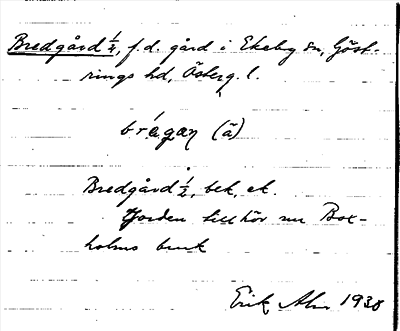 Bredgård 1/2, f.d. gård i Ekeby sn, Göst-
rings hd, Österg. l.
brägaṇ (ä)
Bredgård 1/2, bek, ek.
Jorden tillhör nu Box-
holms bruk
Erik Alm 1938